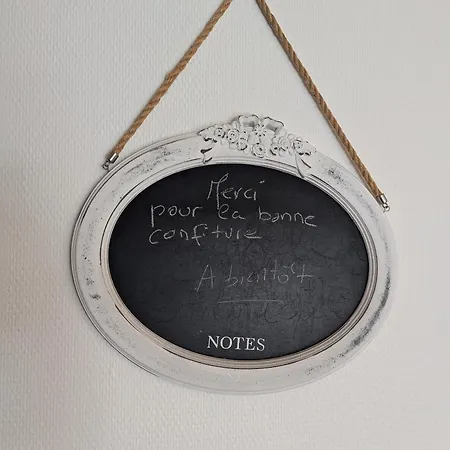 Merci
pour la bonne
confiture
A bientôt
NOTES